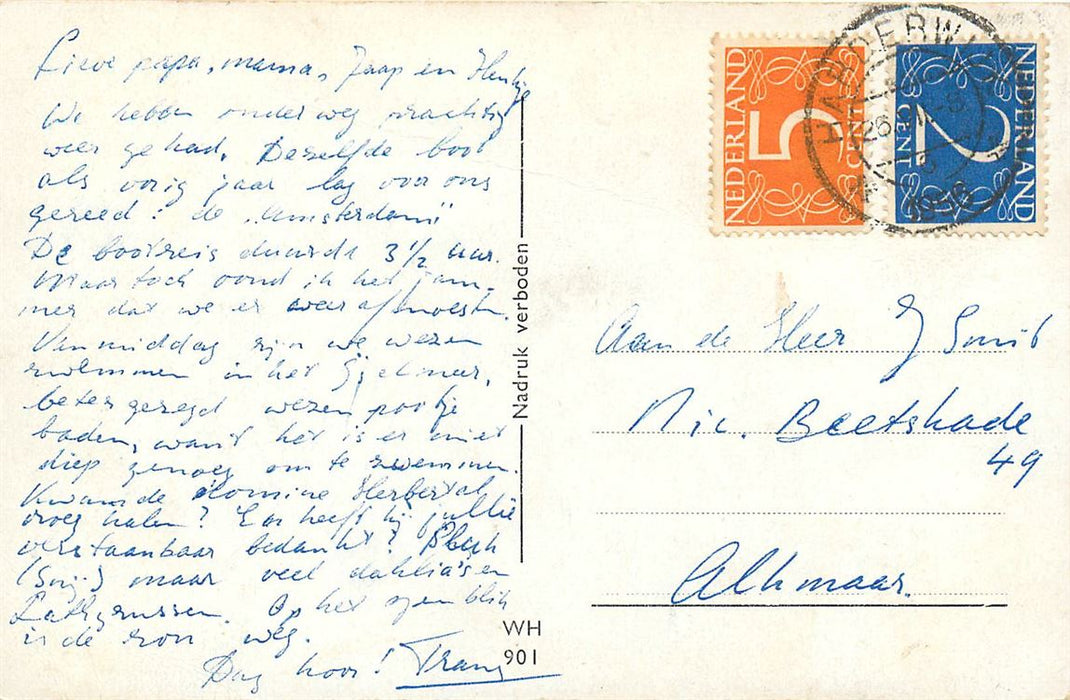 Lieve papa, mama, Jaap en Henkje
We hebben onderweg prachtig
weer gehad. Dezelfde boot
als vorig jaar lag voor ons
gereed: de "Amsterdam"
De bootreis duurde 3 1/2 uur.
Maar toch vond ik het jam-
mer dat we er weer af moesten.
Vanmiddag zijn we wezen
zwemmen in het IJselmeer,
beter gezegd wezen pootje
baden, want het is er niet
diep genoeg om te zwemmen.
Kwam de domine
vroeg halen? En heeft hij jullie
verstaanbaar bedankt?
maar veel dahlia's en
Lathyrussen. Op het ogenblik
is de zon weg.
Dag hoor! Frans
Nadruk verboden
WH
901
NEDERLAND
5
CENT
NEDERLAND
2
CENT
HARDERWIJK
26
1956
Aan de Heer J Smit
Nic. Beetskade
49
Alkmaar.